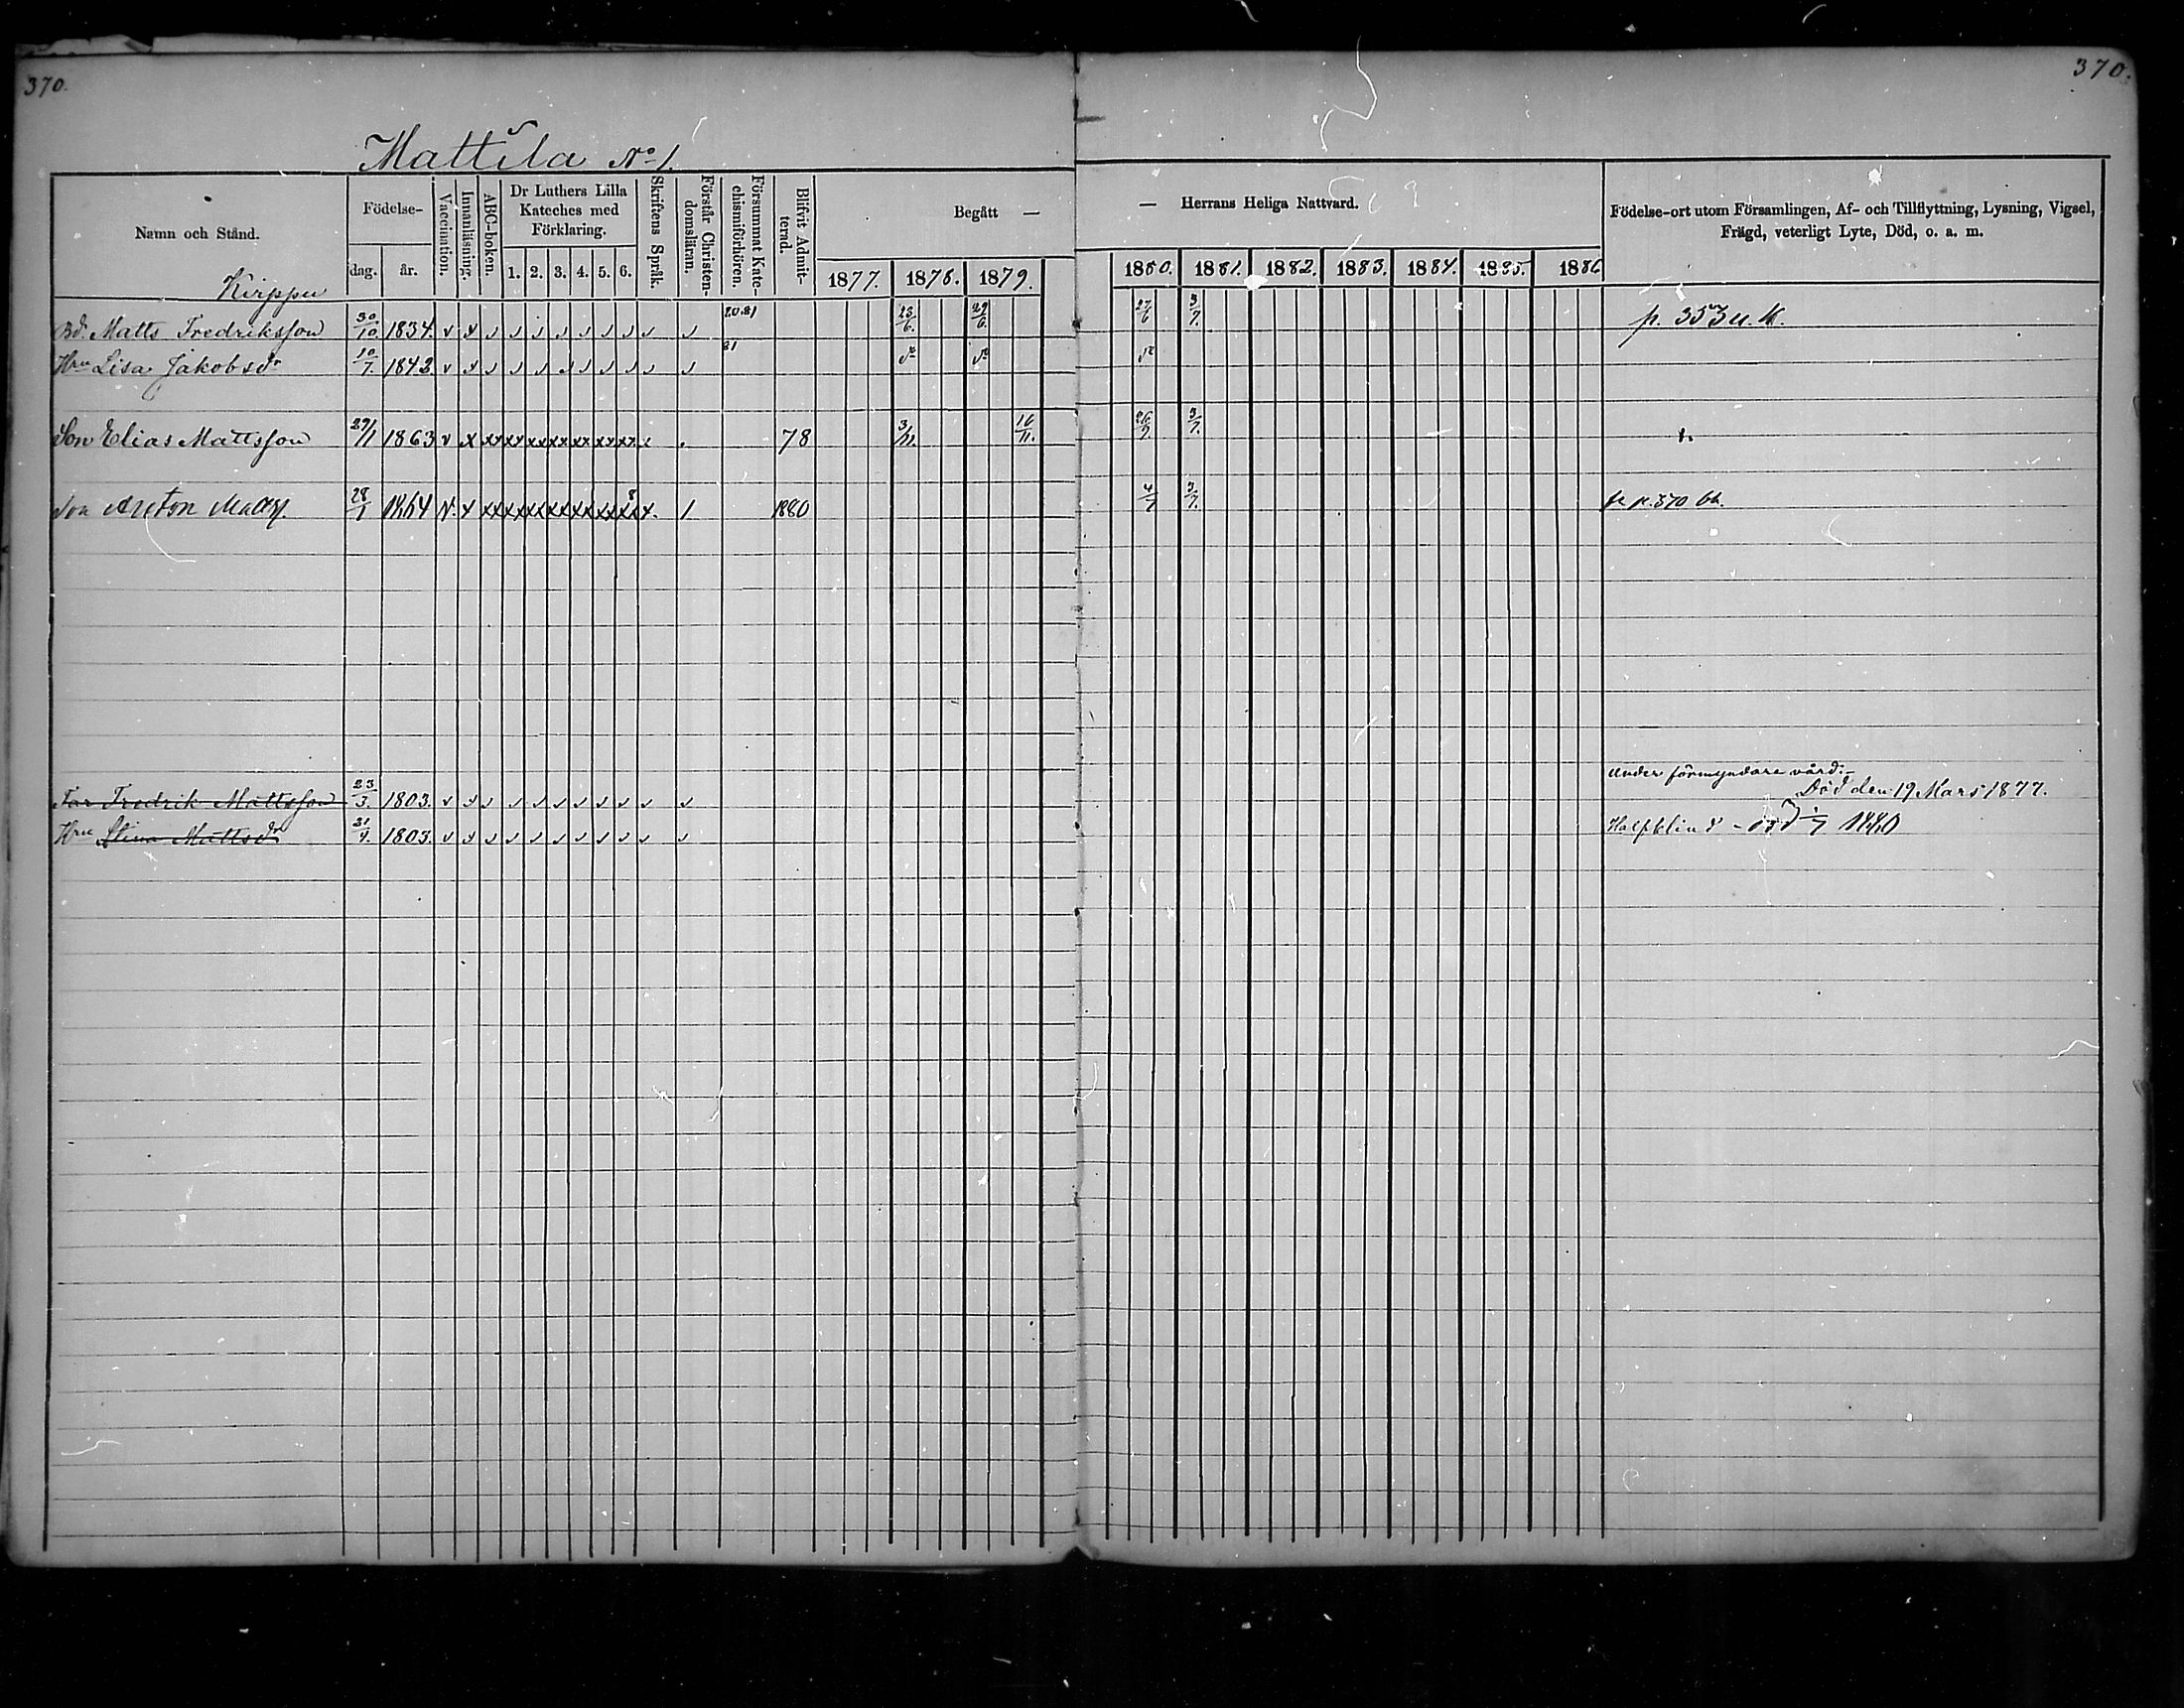 370.
370.
Mattila No 1.
Namn och Stånd.
Födelse-
dag.
år.
Vaccination.
Innanläsning.
ABC-boken.
Dr Luthers Lilla
Kateches med
Förklaring.
1. 2. 3. 4. 5. 6.
Skriftens Språk.
Förstår Christen-
domsläran.
Försummat Kate-
chismiförhören.
Blifvit Admit-
terad.
Begått —
— Herrans Heliga Nattvard.
1877. 1878. 1879.
1880. 1881. 1882. 1883. 1884. 1885. 1886
Födelse-ort utom Församlingen, Af- och Tillflyttning, Lysning, Vigsel,
Frägd, veterligt Lyte, Död, o. a. m.
Kirppu
Bd. Matts Fredriksson 30/10. 1834. v x 20.81 23/6. 29/6. 27/6 3/7. p. 353 u. k.
Hru Lisa Jakobsdr 10/7. 1842. v x 81 do do do
Son Elias Mattsson 29/11 1863 v x xx xx xx xx xx xx xx x 78 3/11. 16/11. 26/9. 3/7.
Son Anton Matts. 28/1 1864 v. x xx xx xx xx xx xx xx x. 1 1880 4/7 3/7. fr p. 370 bk.
Under förmyndare vård:-
Far Fredrik Mattsson 23/3. 1803. v x Död den 19 Mars 1877.
Hru Stina Mattsdr 31/9. 1803. v x Halfblind - död 1/7 1880